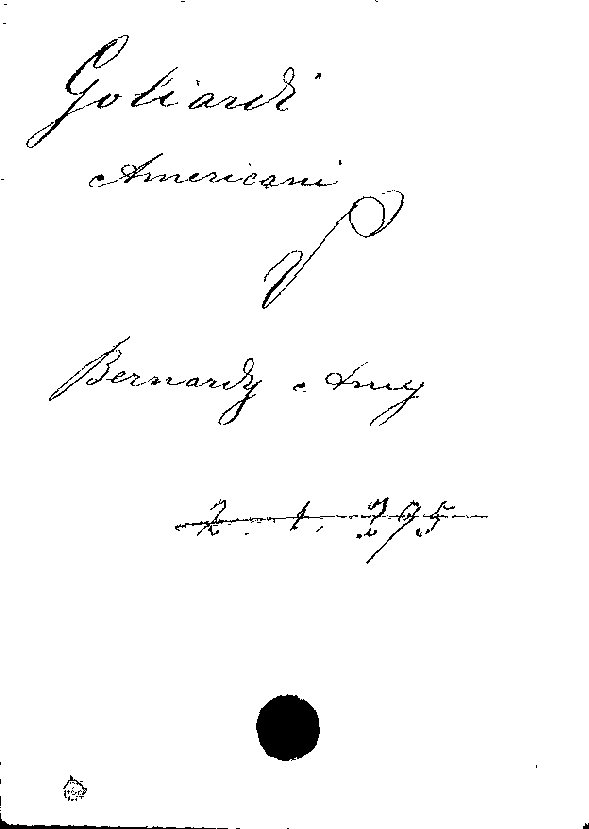 Goliardi
Americani
Bernardy Amy
2. 1. 395